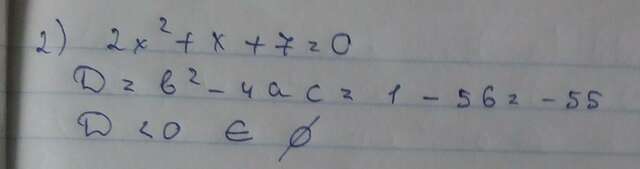 2) 2x² + x + 7 = 0
D = b² - 4ac = 1 - 56 = -55
D < 0 ∈ ∅